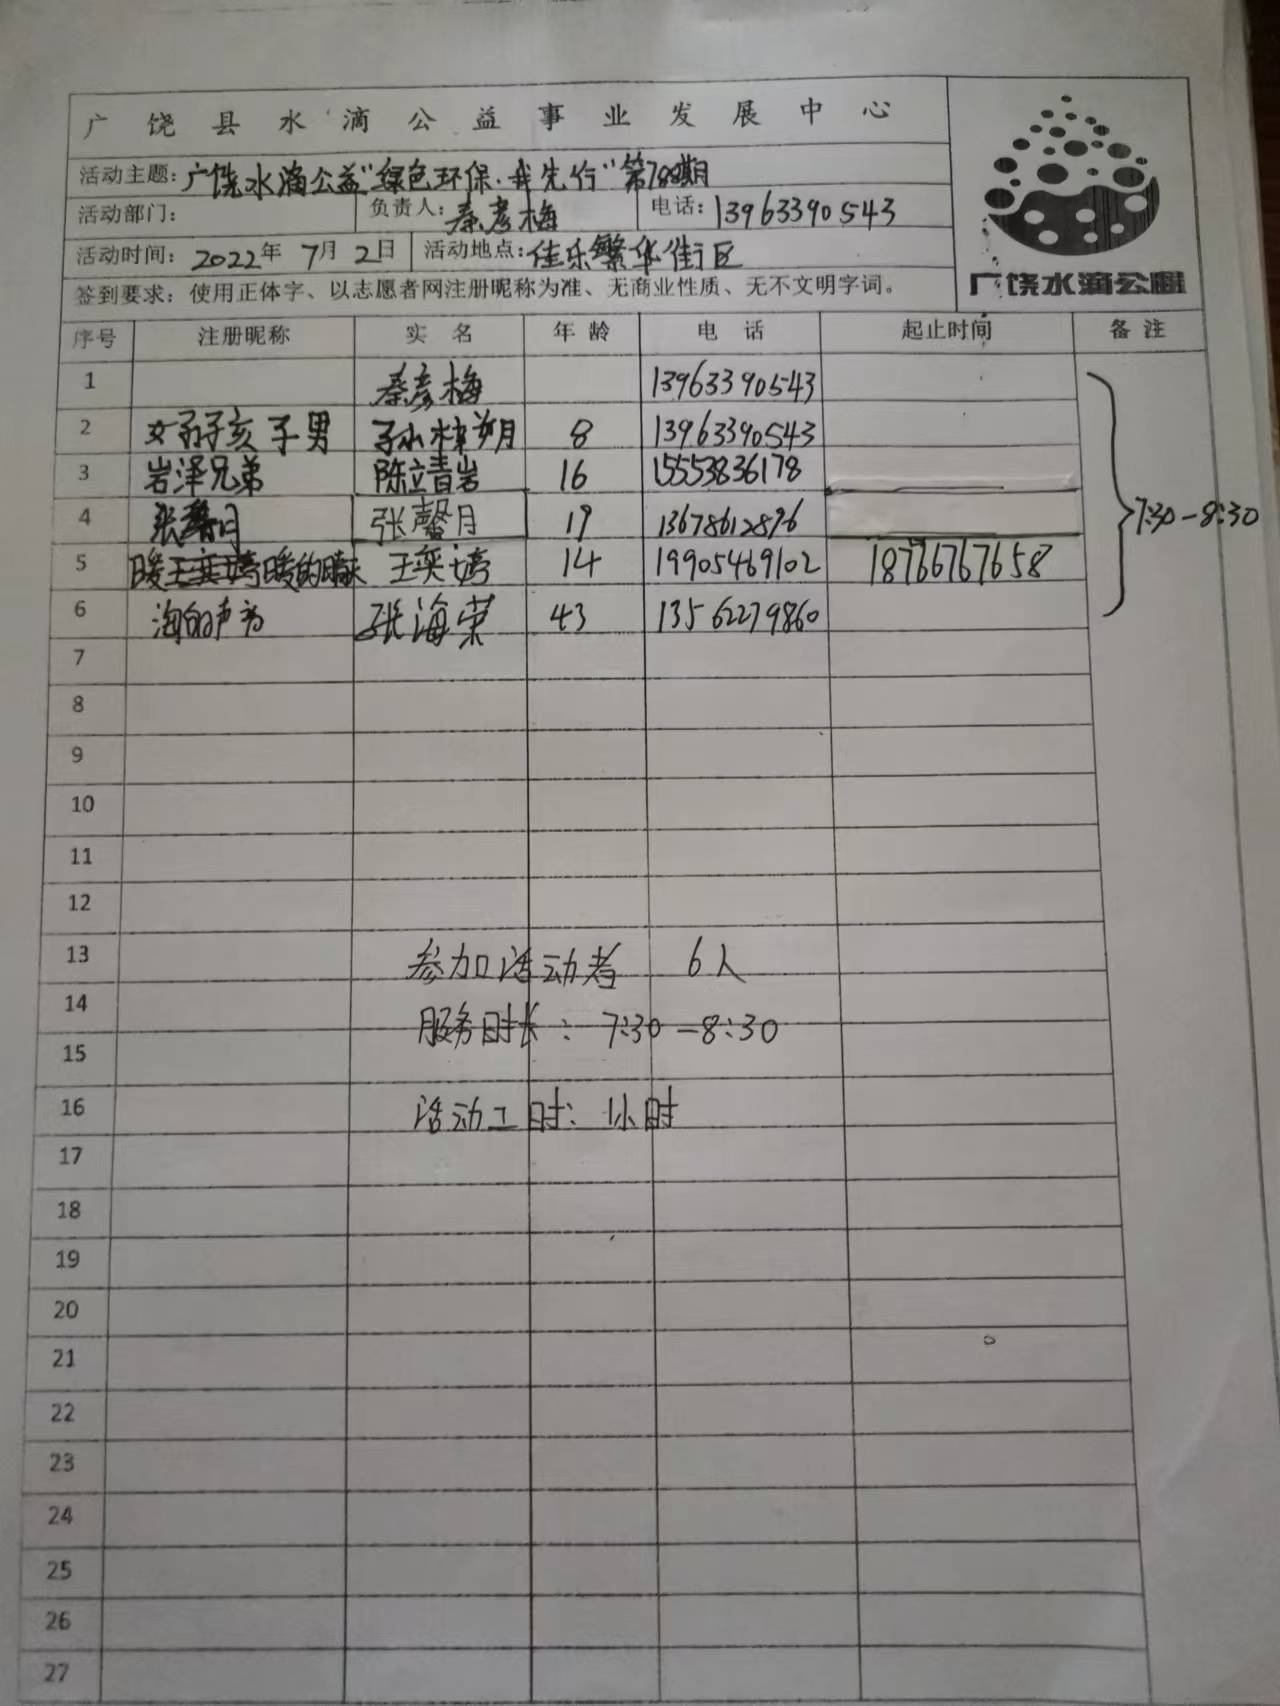 广饶县水滴公益事业发展中心
活动主题：广饶水滴公益"绿色环保·我先行"第788期
活动部门： 负责人：秦彦梅 电话：13963390543
活动时间：2022年 7月 2日 活动地点：佳乐繁华街区
签到要求：使用正体字、以志愿者网注册昵称为准、无商业性质、无不文明字词。
广饶水滴公益
序号 注册昵称 实名 年龄 电话 起止时间 备注
1 秦彦梅 13963390543
2 8 13963390543
3 岩泽兄弟 陈立青岩 16 15553836178
4 张馨月 19 13678612896
7:30-8:30
5 王奕婷 14 19905469102 18766767658
6 海的声音 张海荣 43 13562279860
7
8
9
10
11
12
13 参加活动者 6人
14
服务时长：7:30-8:30
15
16 活动工时：1小时
17
18
19
20
21
22
23
24
25
26
27